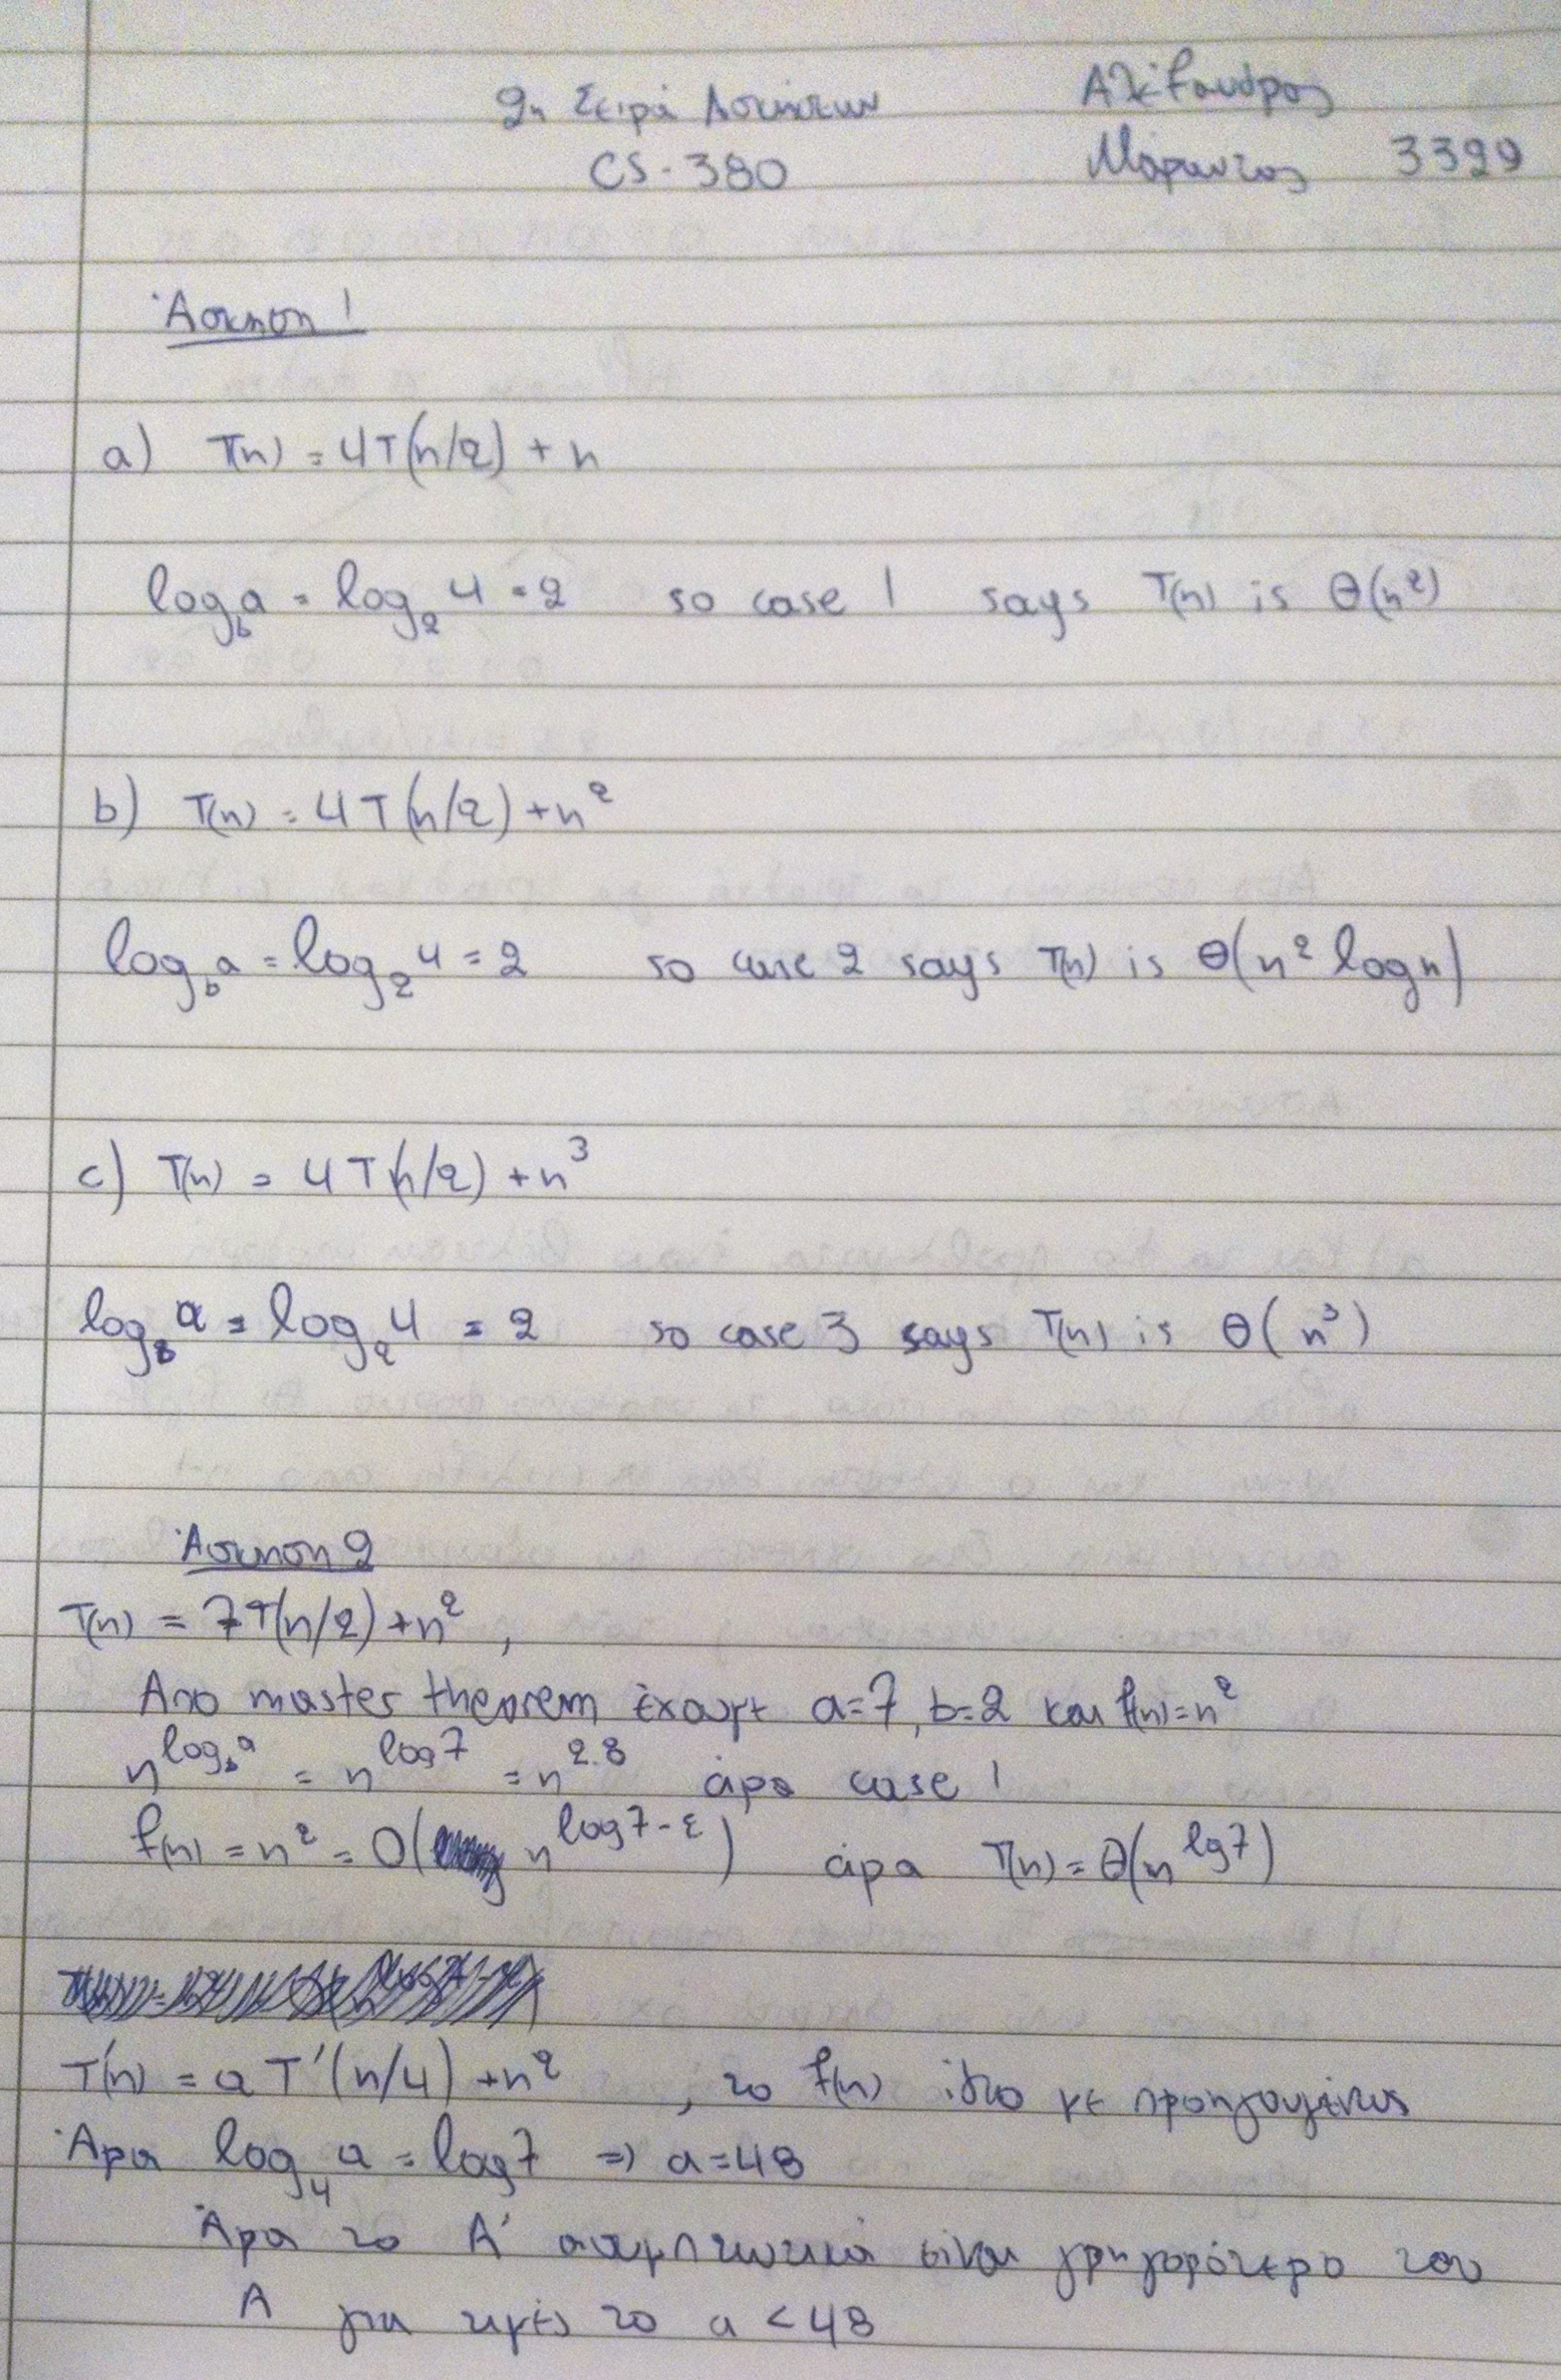 2η Σειρά Ασκήσεων Αλέξανδρος
CS-380 Μάραντος 3399
Άσκηση 1
a) T(n) = 4T(n/2) + n
log_b a = log_2 4 = 2 so case 1 says T(n) is Θ(n²)
b) T(n) = 4T(n/2) + n²
log_b a = log_2 4 = 2 so case 2 says T(n) is Θ(n² log n)
c) T(n) = 4T(n/2) + n³
log_b a = log_2 4 = 2 so case 3 says T(n) is Θ(n³)
Άσκηση 2
T(n) = 7T(n/2) + n²,
Απο master theorem έχουμε a=7, b=2 και f(n)=n²
n^{log_b a} = n^{log7} = n^{2.8} άρα case 1
f(n) = n² = O(n^{log7-ε}) άρα T(n) = Θ(n^{lg7})
T'(n) = a T'(n/4) + n² , το f(n) ίδιο με προηγουμένως
Άρα log_4 a = log7 => a=48
Άρα το A' ασυμπτωτικά είναι γρηγορότερο του
A για τιμές το a < 48